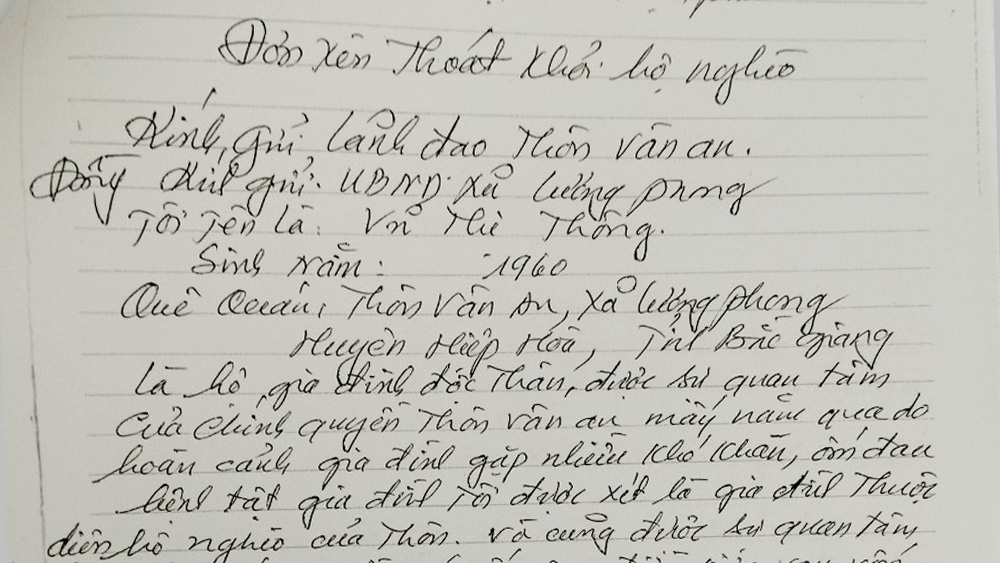 Đơn xên Thoát khỏi hộ nghèo
Kính, gửi lãnh đao Thôn vân an.
Đồng Kính gửi. UBND. xã lương phong
Tôi Tên là. Vũ Thị Thông.
Sinh Năm: 1960
Quê Quán, Thôn Vân An, xã lương phong
Huyện Hiệp Hòa, Tỉnh Bắc Giang
là hộ, gia đình độc Thân, được sự quan tâm
của chính quyền Thôn Vân an mấy năm qua do
hoàn cảnh gia đình gặp nhiều khó khăn, ốm đau
bệnh tật gia đình Tôi được xét là gia đình Thuộc
diện hộ nghèo của Thôn. và cũng được sự quan tâm